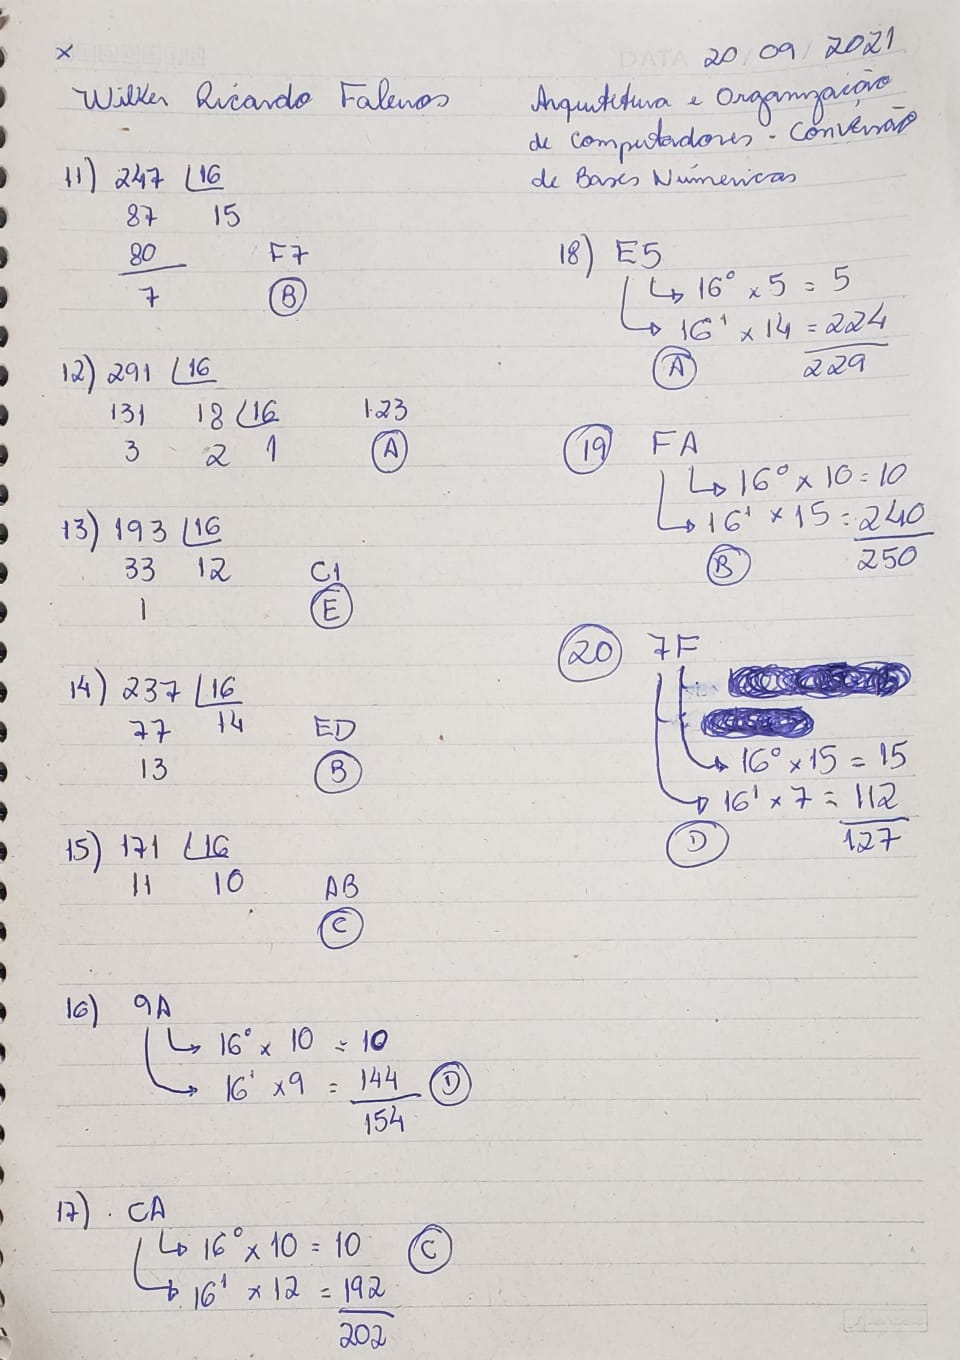 DATA 20 09 / 2021
x
Wilker Ricardo Falenos
Arquitetura e Organização
de Computadores - Conversão
de Bases Númericas
11) 247 16
87 15
80 F7
7 B
12) 291 16
131 18 16 123
3 2 1 A
13) 193 16
33 12 C1
1 E
14) 237 16
77 14 ED
13 B
15) 171 16
11 10 AB
C
16) 9A
16⁰ x 10 = 10
16¹ x 9 = 144 D
154
17) CA
16⁰ x 10 = 10 C
16¹ x 12 = 192
202
18) E5
16⁰ x 5 = 5
16¹ x 14 = 224
A 229
19 FA
16⁰ x 10 = 10
16¹ x 15 = 240
B 250
20 7F
16⁰ x 15 = 15
16¹ x 7 = 112
D 127